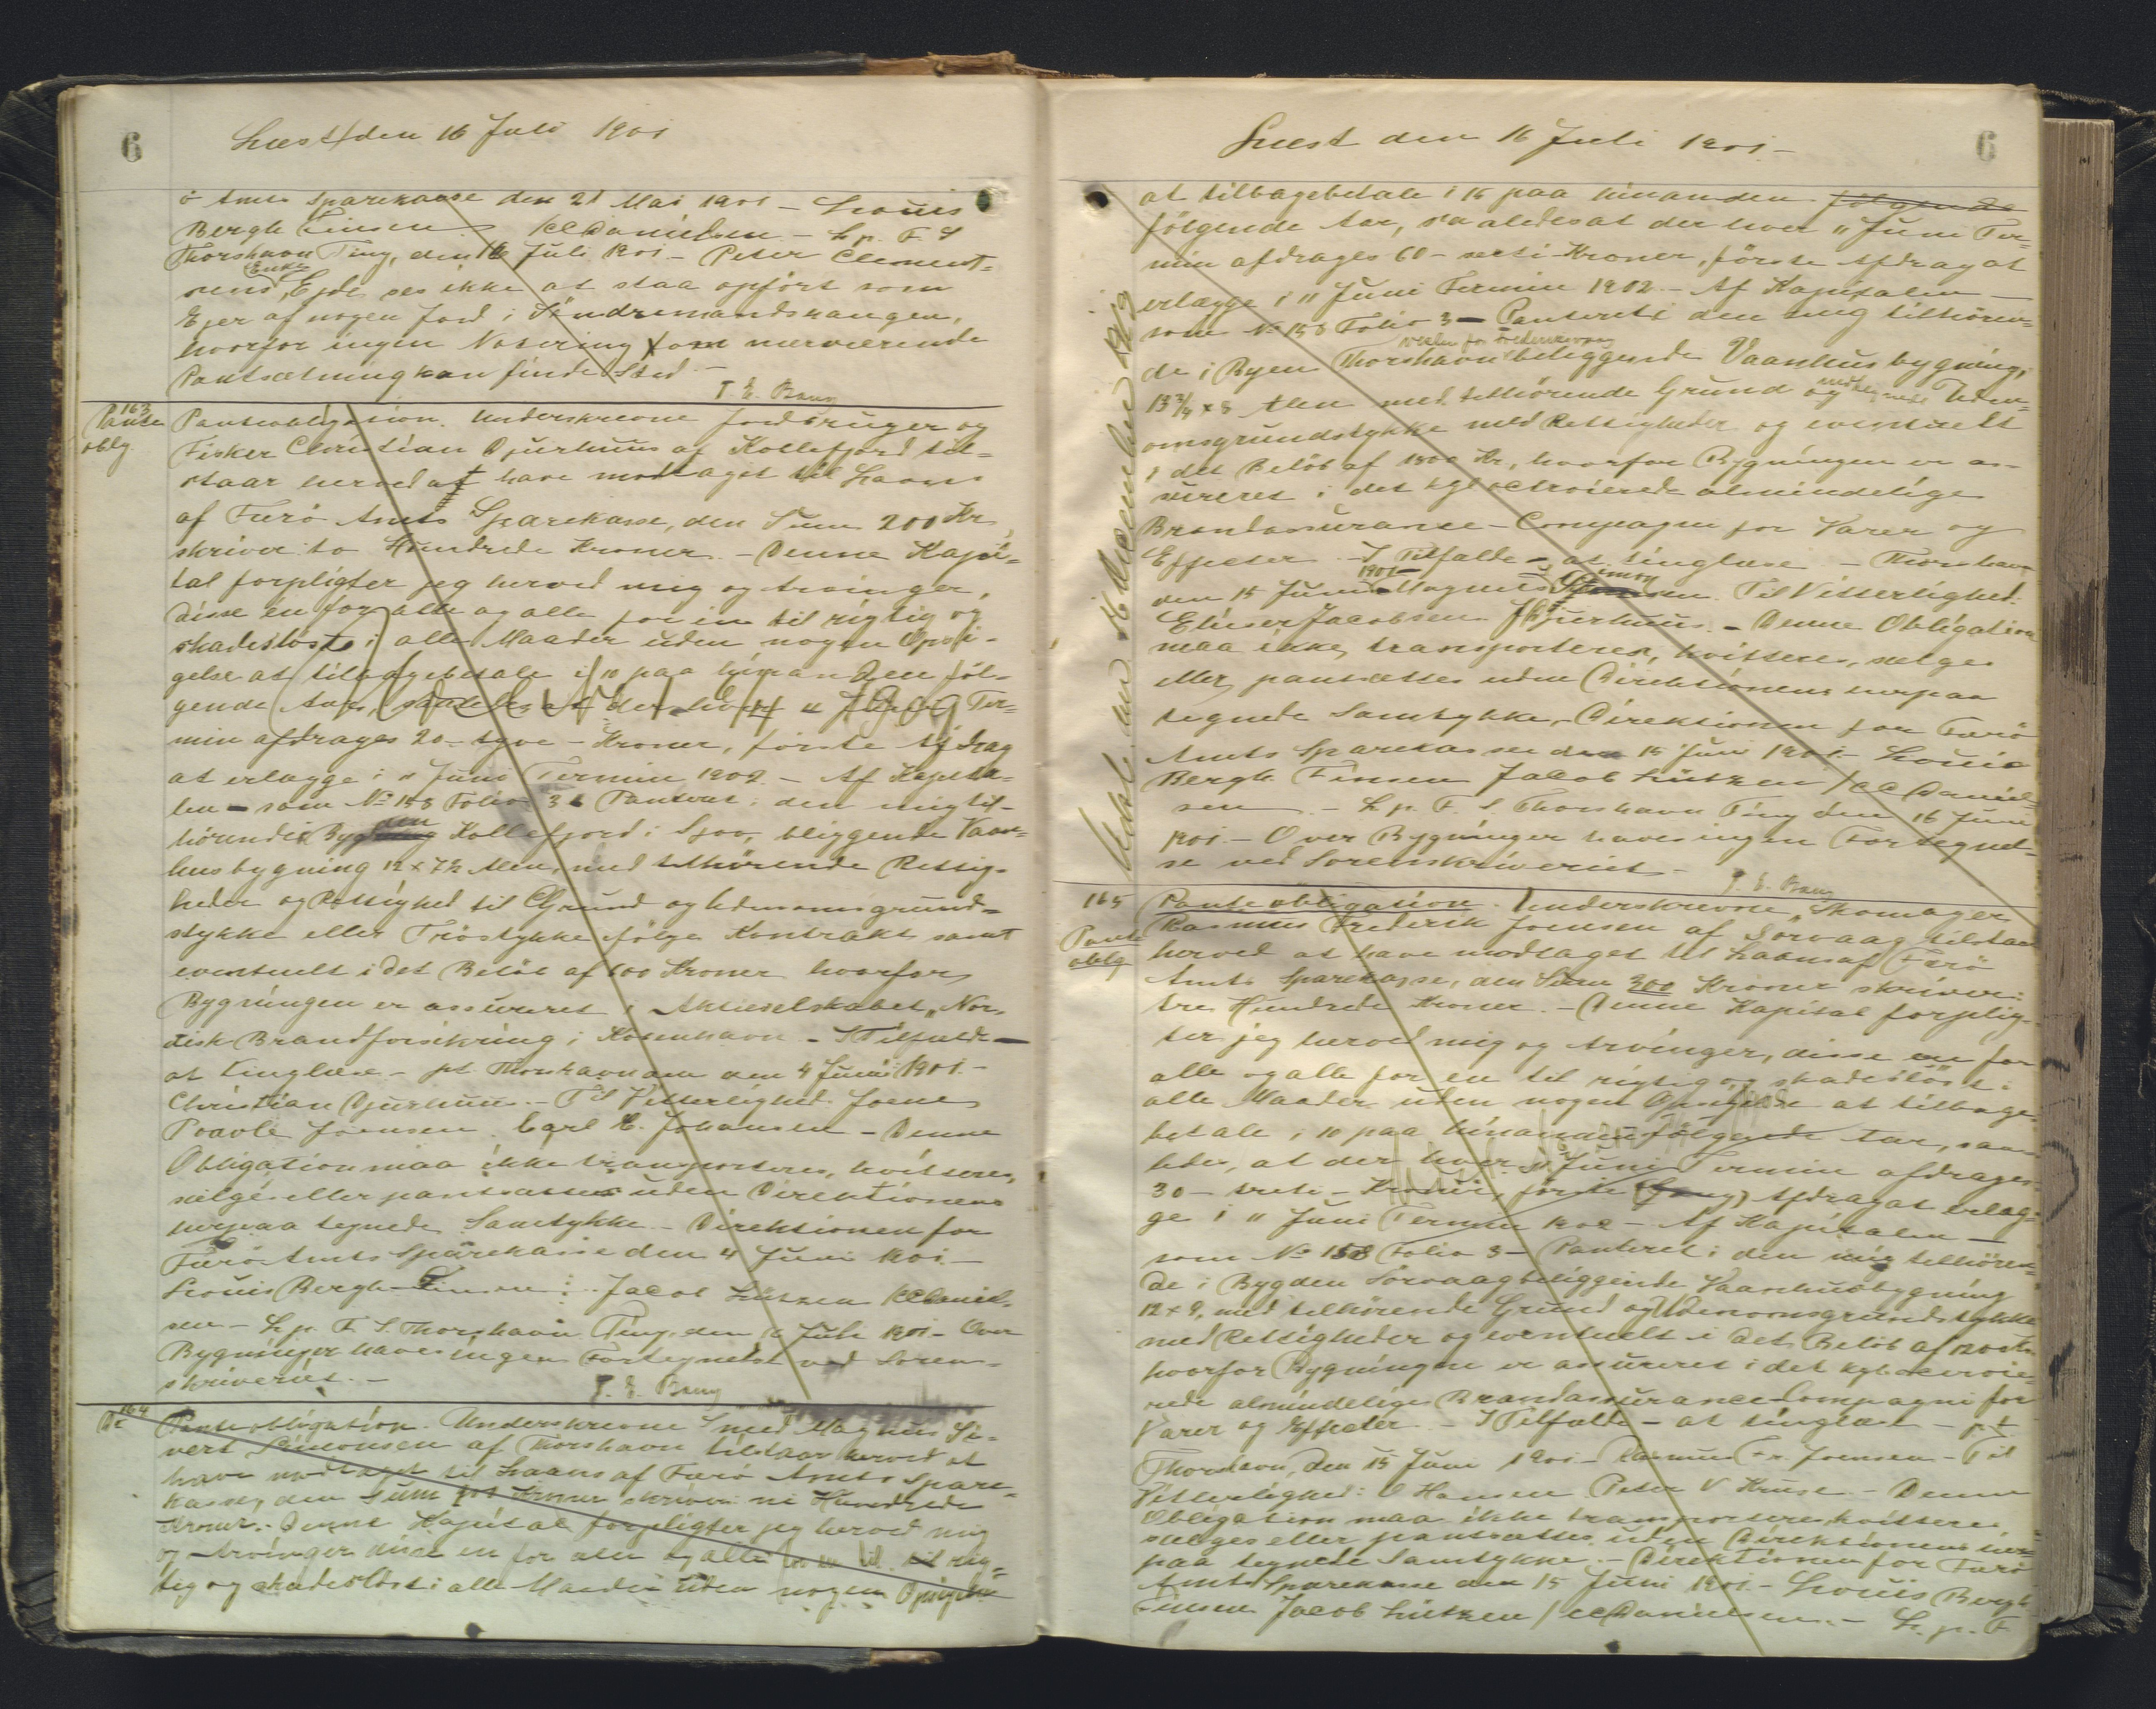 6
Læst den 16 Juli 1901
ö Amts Sparekasse den 21 Mai 1901 – Louis
Bergh Finsen / CC Danielsen – L. p. F. S
Thorshavn Ting, den 16 Juli 1901 – Peter Clement-
sens Enke, Ejde ses ikke at staa opført som
Ejer af nogen Jord i Søndremandshaugen,
hvorfor ingen Notering om nærværende
Pantsætning kan finde Sted –
T. E. Bang
163
Pante
oblg.
Panteobligation. Underskrevne Jordbruger og
Fisker Christian Djurhuus af Kollefjord til-
staar herved at have modtaget til Laans
af Færö Amts Sparekasse, den Sum 200 Kr
skriver to Hundrede Kroner. – Denne Kapi-
tal forpligter jeg herved mig og Arvinger,
disse en for alle og alle for en til rigtig og
skadesløst i alle Maader uden nogen Opsi-
gelse at tilbagebetale i 10 paa hinanden föl-
gende Aar, saaledes at der hver 11 Juni Ter-
min afdrages 20 – tyve – Kroner, første Afdrag
at erlægge i 11 Juni Termin 1902 – Af Kapita-
len – som No 158 Folio 3 – Panteret i den mig til-
hörende i Bygden Kollefjord i Sjov, beliggende Vaan-
husbygning 12 x 7½ Alen, med tilhörende Rettig-
heder og Rettighed til Grund og Udenomsgrund-
stykke eller Tröstykke ifölge Kontrakt samt
eventuelt i det Belöb af 600 Kroner hvorfor
Bygningen er assureret i Aktieselskabet „Nor-
disk Brandforsikring i Köbenhavn – I Tilfælde –
at tinglæse – pt Thorshavn den 4 Juni 1901. –
Christian Djurhuus. – Til Vitterlighed Joen
Poavle Joensen. Carl E. Johansen – Denne
Obligation maa ikke transporteres, kvitteres,
sælges eller pantsættes uden Direktionens
herpaa tegnede Samtykke – Direktionen for
Færö Amts Sparekasse den 4 Juni 1901. –
Louis Bergh Finsen Jacob Lützen / CC Daniel-
sen – L. p. F. S. Thorshavn Ting, den 16 Juli 1901 – Over
Bygninger haves ingen Fortegnelse ved Soren-
skriveriet. –
T. E. Bang
164
Do
Panteobligation. Underskrevne Smed Magnus Si-
vert Simonsen af Thorshavn tilstaar herved at
have modtaget til Laans af Færö Amts Spare-
kasse, den Sum Kroner skriver ni Hundrede
Kroner. Denne Kapital forpligter jeg herved mig
og Arvinger disse en for alle og alle for en til rig-
tig og skadesløst i alle Maader uden nogen Opsigelse
6
Læst den 16 Juli 1901 –
at tilbagebetale i 15 paa hinanden følgende
følgende Aar, saaledes at der hver 11 Juni Ter-
min afdrages 60 – seksti – Kroner, første Afdrag at
erlægge i 11 Juni Termin 1902 – Af Kapitalen –
som No 158 Folio 3 – Panteret i den mig tilhören-
de i Byen Thorshavn beliggende Vaanhusbygning,
13¾ x 8 Alen med tilhörende Grund og Uden-
omsgrundstykke med Rettigheder og eventuelt
i det Belöb af 1800 Kr, hvorfor Bygningen er as-
sureret i det kgl octroierede almindelige
Brandassurance-Compagni for Varer og
Effecter. – I Tilfælde – at tinglæse – Thorshavn
den 15 Juni 1901 – Magnus Simonsen. Til Vitterlighed:
Elieser Jacobsen J Djurhuus. – Denne Obligation
maa ikke transporteres, kvitteres, sælges
eller pantsættes uden Direktionens herpaa
tegnede Samtykke, – Direktionen for Færö
Amts Sparekasse den 15 Juni 1901. – Louis
Bergh Finsen Jacob Lützen / CC Daniel-
sen – L. p. F. S Thorshavn Ting den 16 Juli
1901. – Over Bygninger haves ingen Fortegnel-
se ved Sorenskriveriet –
T. E. Bang
165
Pante
oblg
Panteobligation. Underskrevne Skomager
Rasmus Frederik Joensen af Sorvaag tilstaar
herved at have modtaget til Laans af Færö
Amts Sparekasse, den Sum 300 Kroner skriver:
tre Hundrede Kroner. – Denne Kapital forplig-
ter jeg herved mig og Arvinger, disse en for
alle og alle for en til rigtig og skadeslöst i
alle Maader uden nogen Opsigelse at tilbage-
betale i 10 paa hinanden følgende Aar, saa-
ledes, at der hver 11 Juni Termin afdrages
30 – treti – Kroner, første Afdrag at erlæg-
ge i 11 Juni Termin 1902 – Af Kapitalen –
som No 158 Folio 3 – Panteret i den mig tilhören-
de i Bygden Sörvaag beliggende Vaanhusbygning
12 x 9, med tilhörende Grund og Udenomsgrundstykke
med Rettigheder og eventuelt i det Belöb af 1200 Kr
hvorfor Bygningen er assureret i det kgl. octroie-
rede almindelige Brandassurance-Compagni for
Varer og Effecter – I Tilfælde – at tinglæse – pt
Thorshavn, den 15 Juni 1901 – Rasmus Fr. Joensen – Til
Vitterlighed: O Hansen Peter V Kruse – Denne
Obligation maa ikke transporteres, kvitteres
sælges eller pantsættes uden Direktionens her-
paa tegnede Samtykke. – Direktionen for Færö
Amts Sparekasse den 15 Juni 1901. – Louis Bergh
Finsen Jacob Lützen / CC Danielsen. – L. p. F